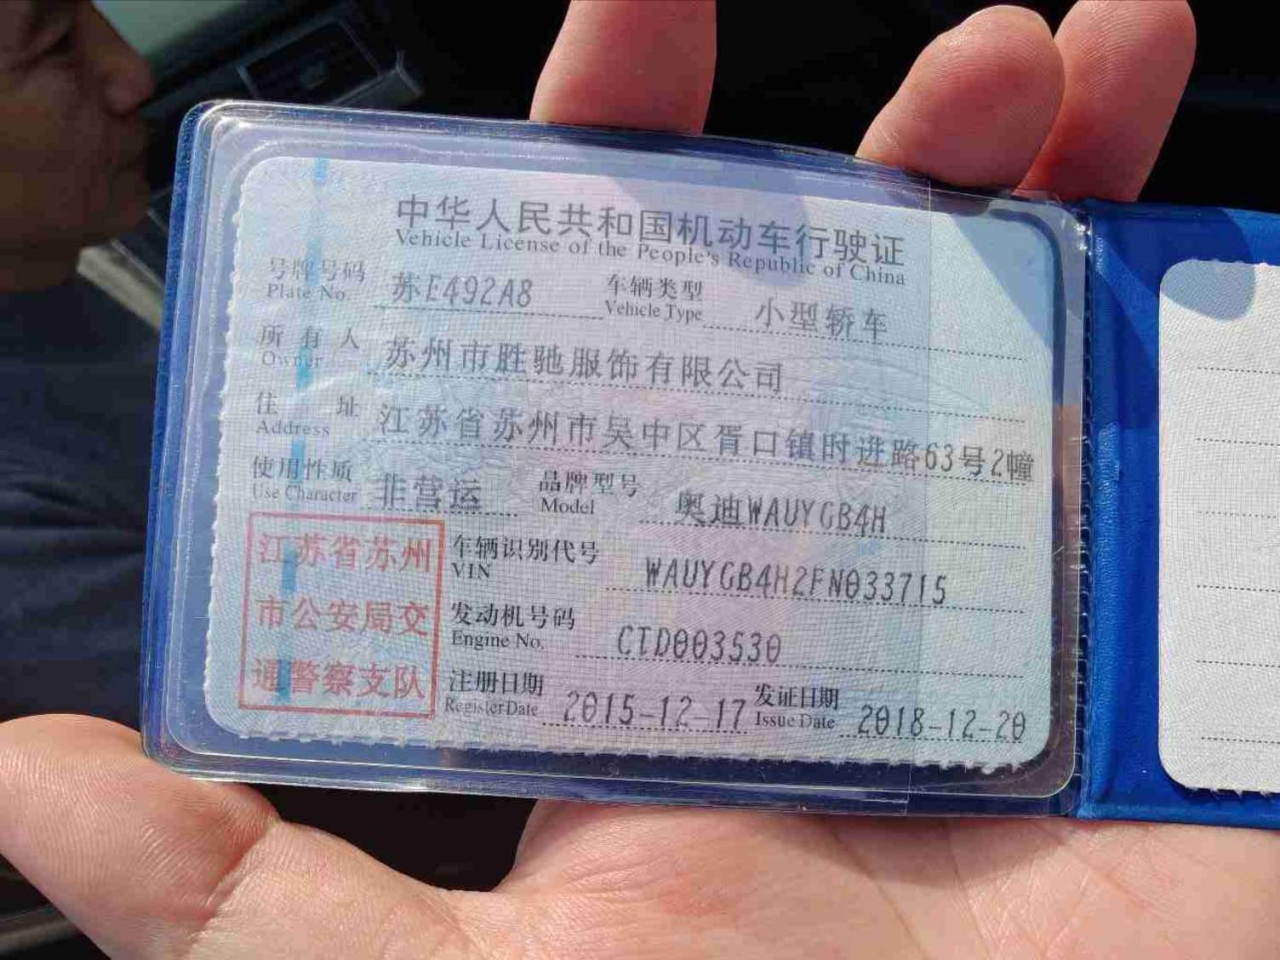 中华人民共和国机动车行驶证
Vehicle License of the People's Republic of China
号牌号码 苏E492A8 车辆类型 小型轿车
Plate No. Vehicle Type
所有人 苏州市胜驰服饰有限公司
Owner
住址 江苏省苏州市吴中区胥口镇时进路63号2幢
Address
使用性质 非营运 品牌型号 奥迪WAUYGB4H
Use Character Model
江苏省苏州
市公安局交
通警察支队
车辆识别代号 WAUYGB4H2FN033715
VIN
发动机号码 CTD003530
Engine No.
注册日期 2015-12-17 发证日期 2018-12-20
Register Date Issue Date